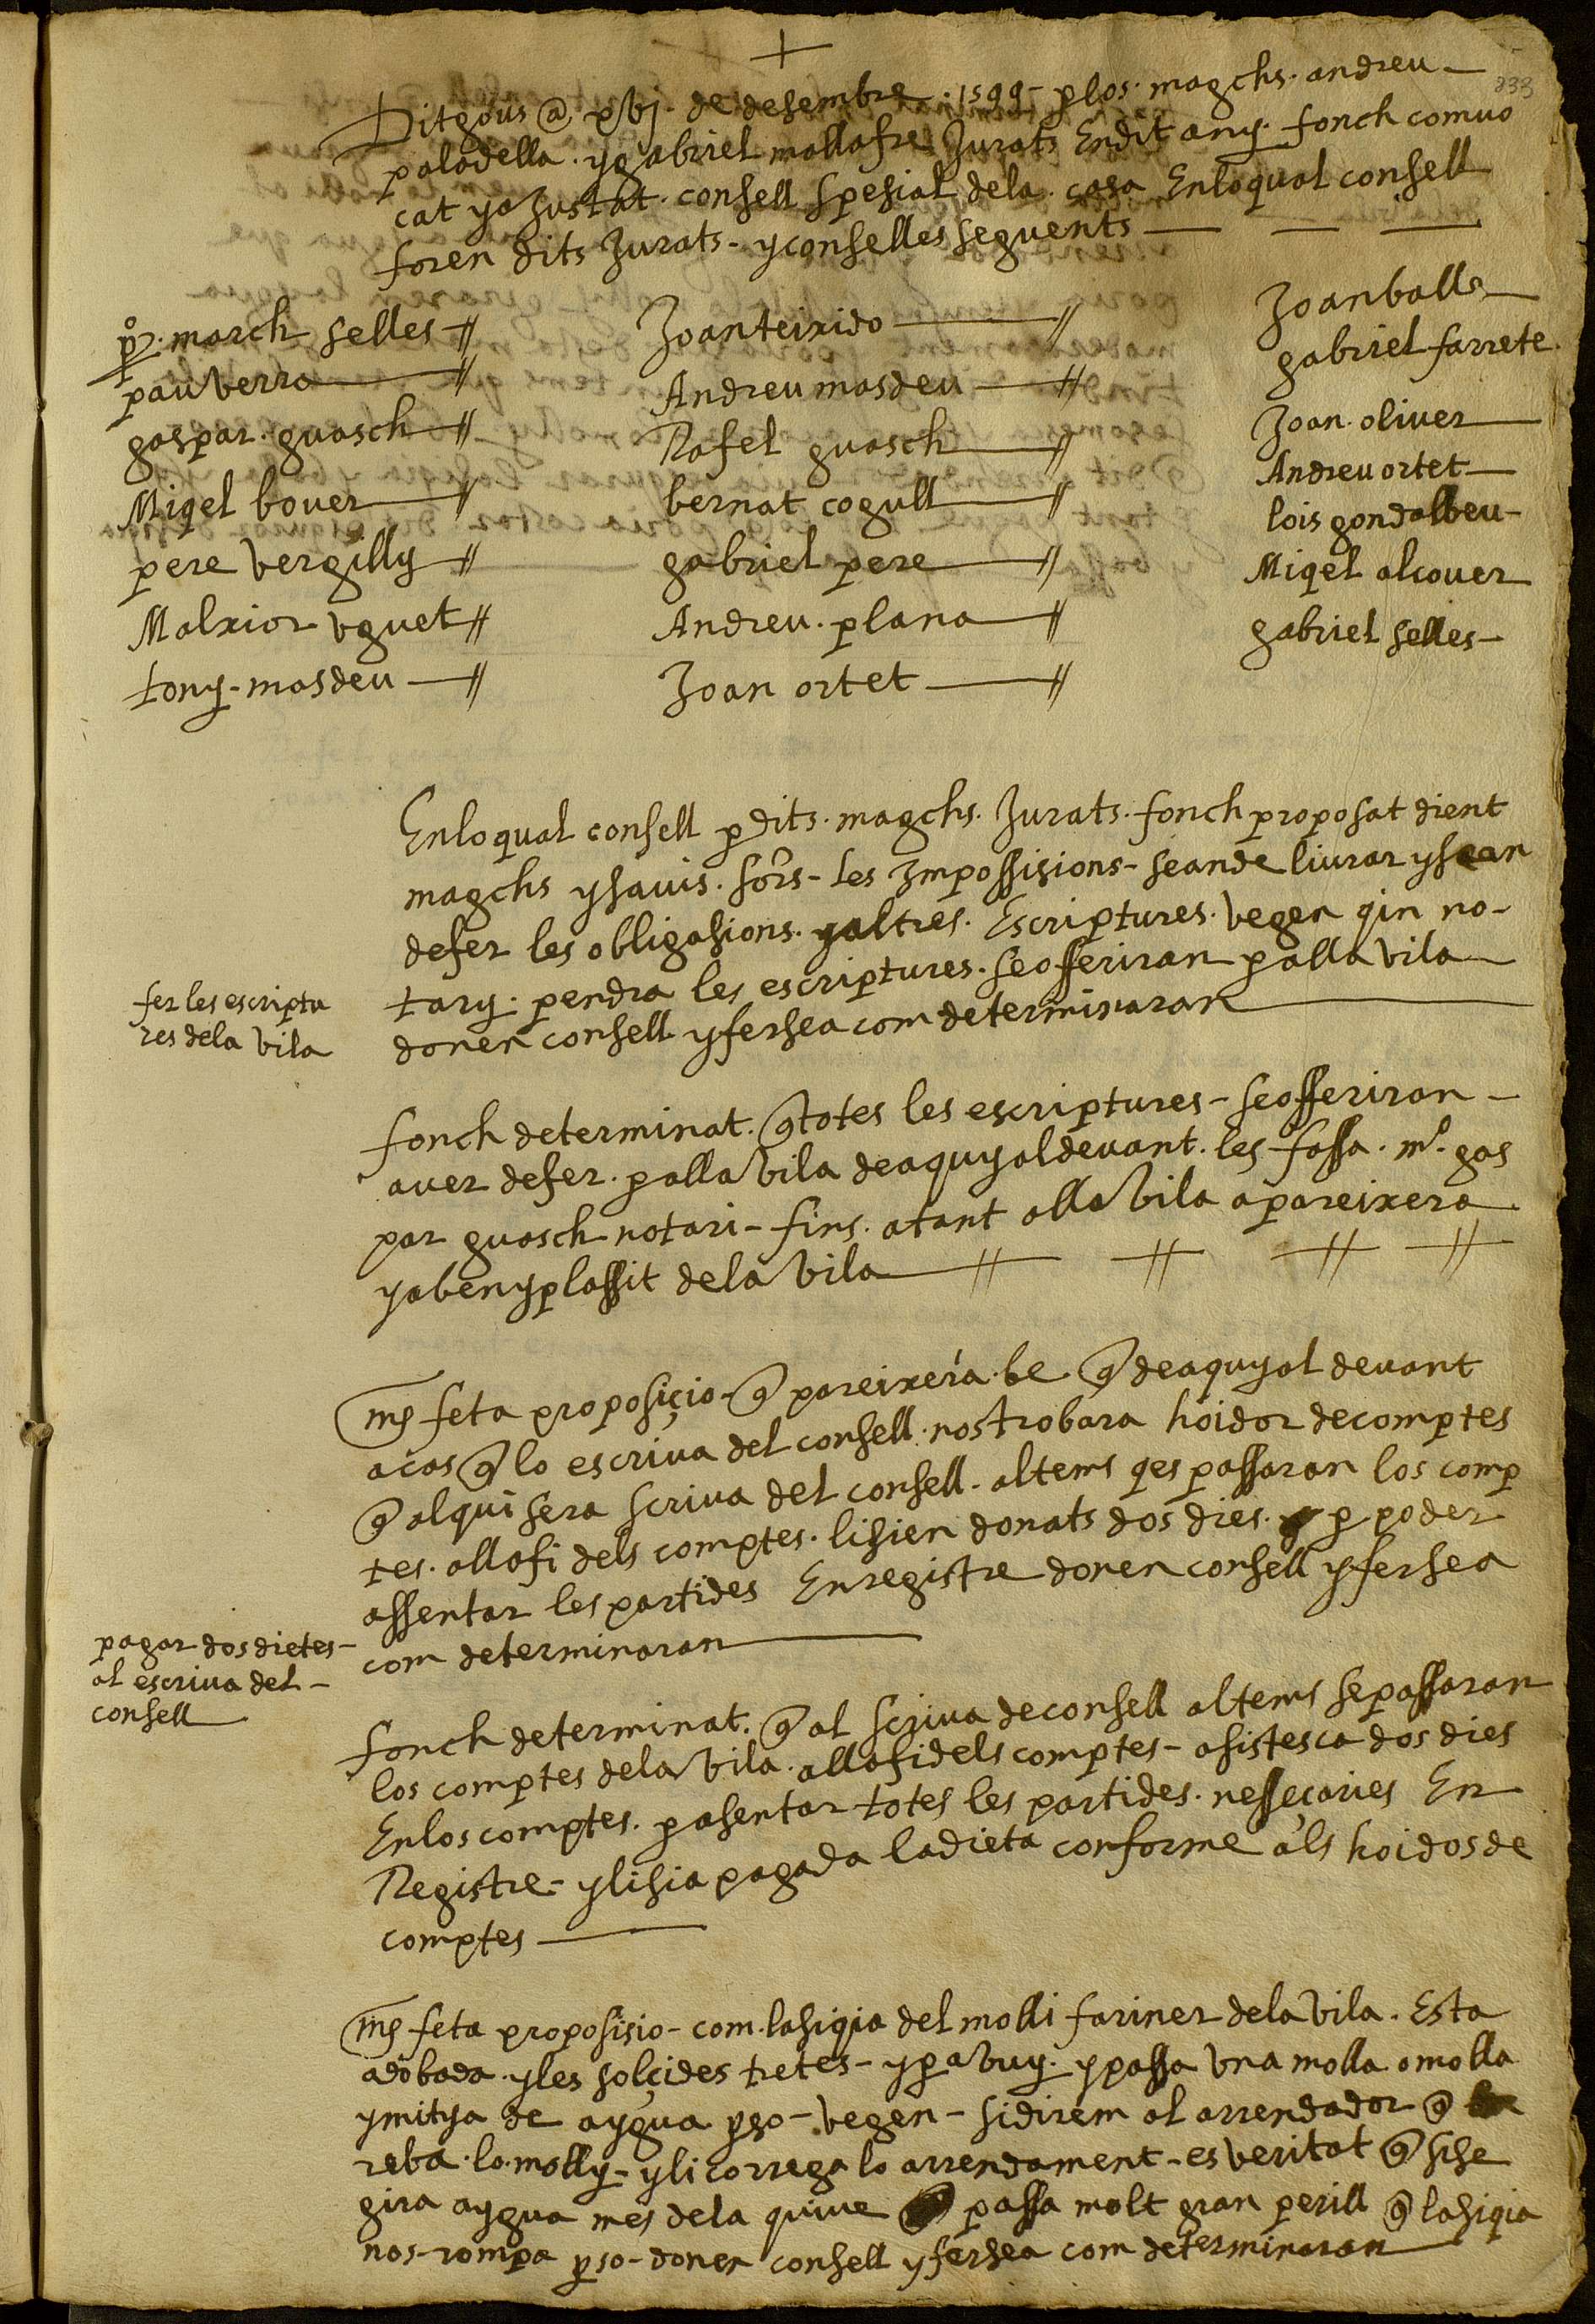 +
233
Ditgous @ xvj. de desembre .1599- p los. magchs. andreu
paladella. y gabriel mallafre Jurats Endit any. fonch comuo
cat y aJustat. consell spesial dela. casa Enloqual consell
foren dits Jurats- y conselles seguents
pº. march selles
pau verra
gaspar. guasch
Miqel bover
pere vergilly
Malxior uguet
tony- masdeu
Joan teixido
Andreu masdeu
Rafel guasch
bernat cogull
gabriel pere
Andreu. plana
Joan ortet
Joan balle
gabriel farrete
Joan. oliver
Andreu ortet
lois gondalbeu-
Miqel alcover
gabriel selles-
Enloqual consell p dits. magchs. Jurats. fonch proposat dient
magchs y savis. sors- les Impossisions- seande liurar y sean
defer les obligasions. y altres. Escriptures. vegen qin no-
tary. pendra les escriptures. se offeriran p alla vila
donen consell y fersea com determinaran
fer les escriptu
res dela vila
fonch determinat. q totes les escriptures- se offeriran-
aver defer. p alla vila deaquy aldevant. les fassa. mº. gas
par guasch notari- fins. atant alla vila apareixera
y a beny plassit dela vila
mes feta proposiçio- q pareixeria. be q deaquy al devant
acas q lo escriva del consell. nos trobara hoidor decomptes
q alqui sera scriva del consell. al tems qes passaran los comp
tes. allafi dels comptes. lisien donats dos dies. p poder
assentar les partides En registre donen consell y fersea
com determinaran
pagar dos dietes-
al escriva del-
consell
fonch determinat. q al scriva de consell al tems se passaran
los comptes dela vila. allafi dels comptes- asistesca dos dies
Enlos comptes. p asentar totes les partides. nesseçaries En
Registre- y lisia pagada la dieta conforme als hoidos de
comptes
mes feta proposisio- com. la siqia del molli fariner dela vila. Esta
adobada. y les solçides tretes- y p avuy. y passa una molla o molla
y mitya de aygua pso- vegen- si direm al arrendador q
reba. lo. molly- y li correga lo arrendament- es veritat q sise
gira aygua mes dela quiue passa molt gran perill q la siqia
nos- rompa pso- donen consell y fersea com determinaran